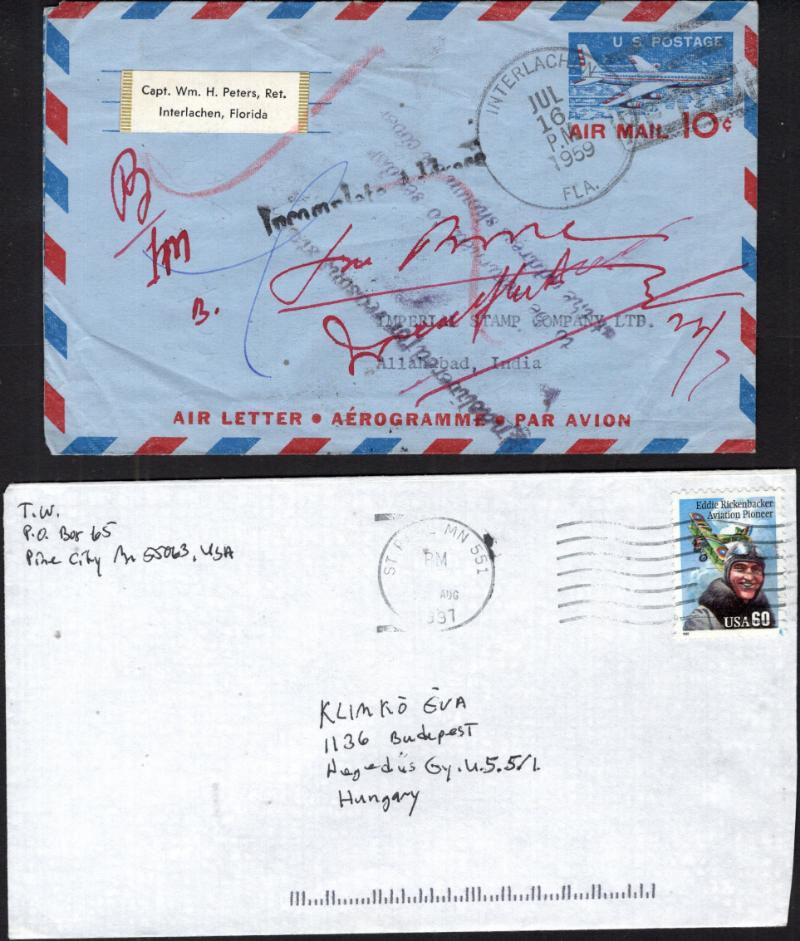 Capt. Wm. H. Peters, Ret.
Interlachen, Florida
U.S. POSTAGE
AIR MAIL 10¢
INTERLACHEN
JUL
16
P.M.
1959
FLA.
Incomplete Address
B
Im
B.
IMPERIAL STAMP COMPANY LTD.
Allahabad, India
AIR LETTER • AÉROGRAMME • PAR AVION
T.W.
P.O. Box 65
Pine City Mn 55063, USA
ST PAUL MN 551
PM
AUG
1997
Eddie Rickenbacker
Aviation Pioneer
USA 60
KLIMKÓ ÉVA
1136 Budapest
Hegedüs Gy. u. 5. 5/1.
Hungary